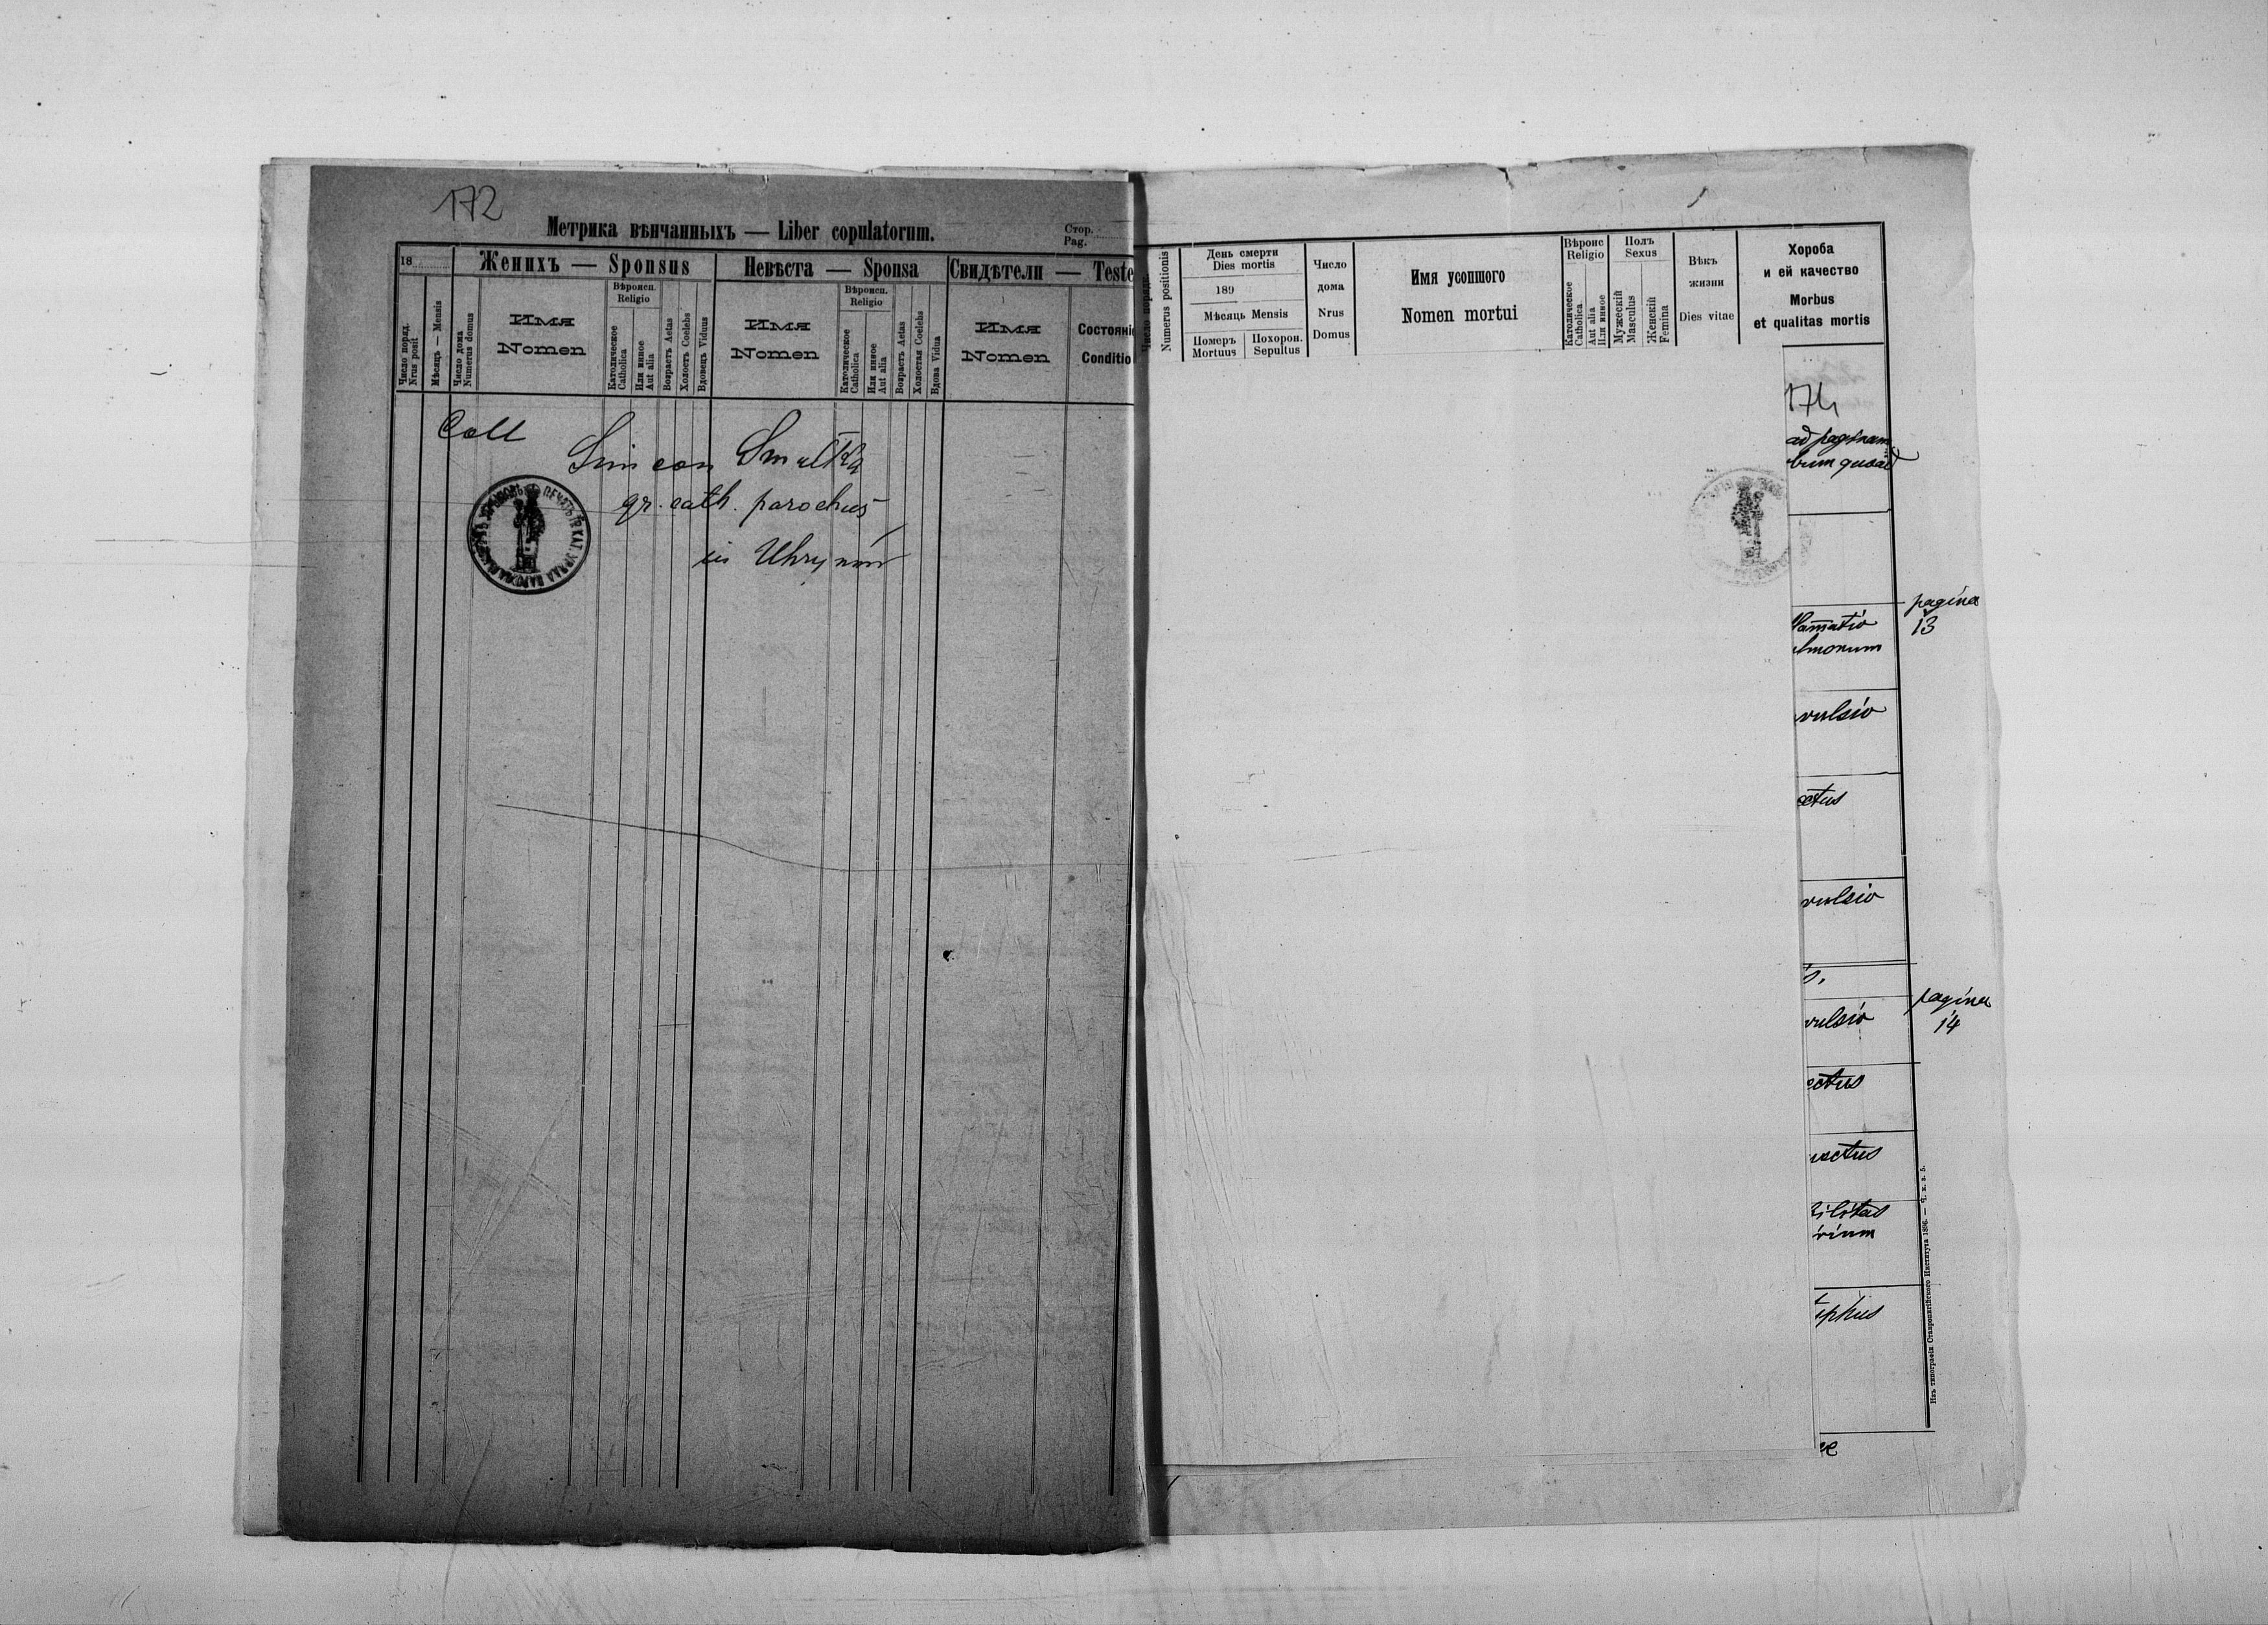 172
Метрика вѣнчанныхъ — Liber copulatorum.
Стор.
Pag.
18
Женихъ — Sponsus
Невѣста — Sponsa
Свидѣтели — Teste
Число поряд.
Nrus posit
Мѣсяць — Mensis
Число дома
Numerus domus
Имя
Nomen
Вѣроисп.
Religio
Католическое
Catholica
Или инное
Aut alia
Возрастъ Aetas
Холостъ Coelebs
Вдовецъ Viduus
Имя
Nomen
Вѣроисп.
Religio
Католическое
Catholica
Или инное
Aut alia
Возрастъ Aetas
Холостая Coelebs
Вдова Vidua
Имя
Nomen
Состояніе
Conditio
Coll
Simeon Smulka
gr. cath. parochus
in Uhrynów
Число порядк.
Numerus positionis
День смерти
Dies mortis
189
Мѣсяць Mensis
Померъ
Mortuus
Похорон.
Sepultus
Число
дома
Nrus
Domus
Имя усопшого
Nomen mortui
Вѣроис
Religio
Католическое
Catholica
Aut alia
Или инное
Полъ
Sexus
Мужескій
Masculus
Женскій
Femina
Вѣкъ
жизни
Dies vitae
Хороба
и ей качество
Morbus
et qualitas mortis
174
ad paginam
pagina
13
lammatio
lmonum
vulsio
ctus
vulsio
s,
pagina
14
vulsio
ectus
ilitas
irium
yphus
Изъ типографіи Ставропигійского Института 1896. — Ч. к. з. 5.